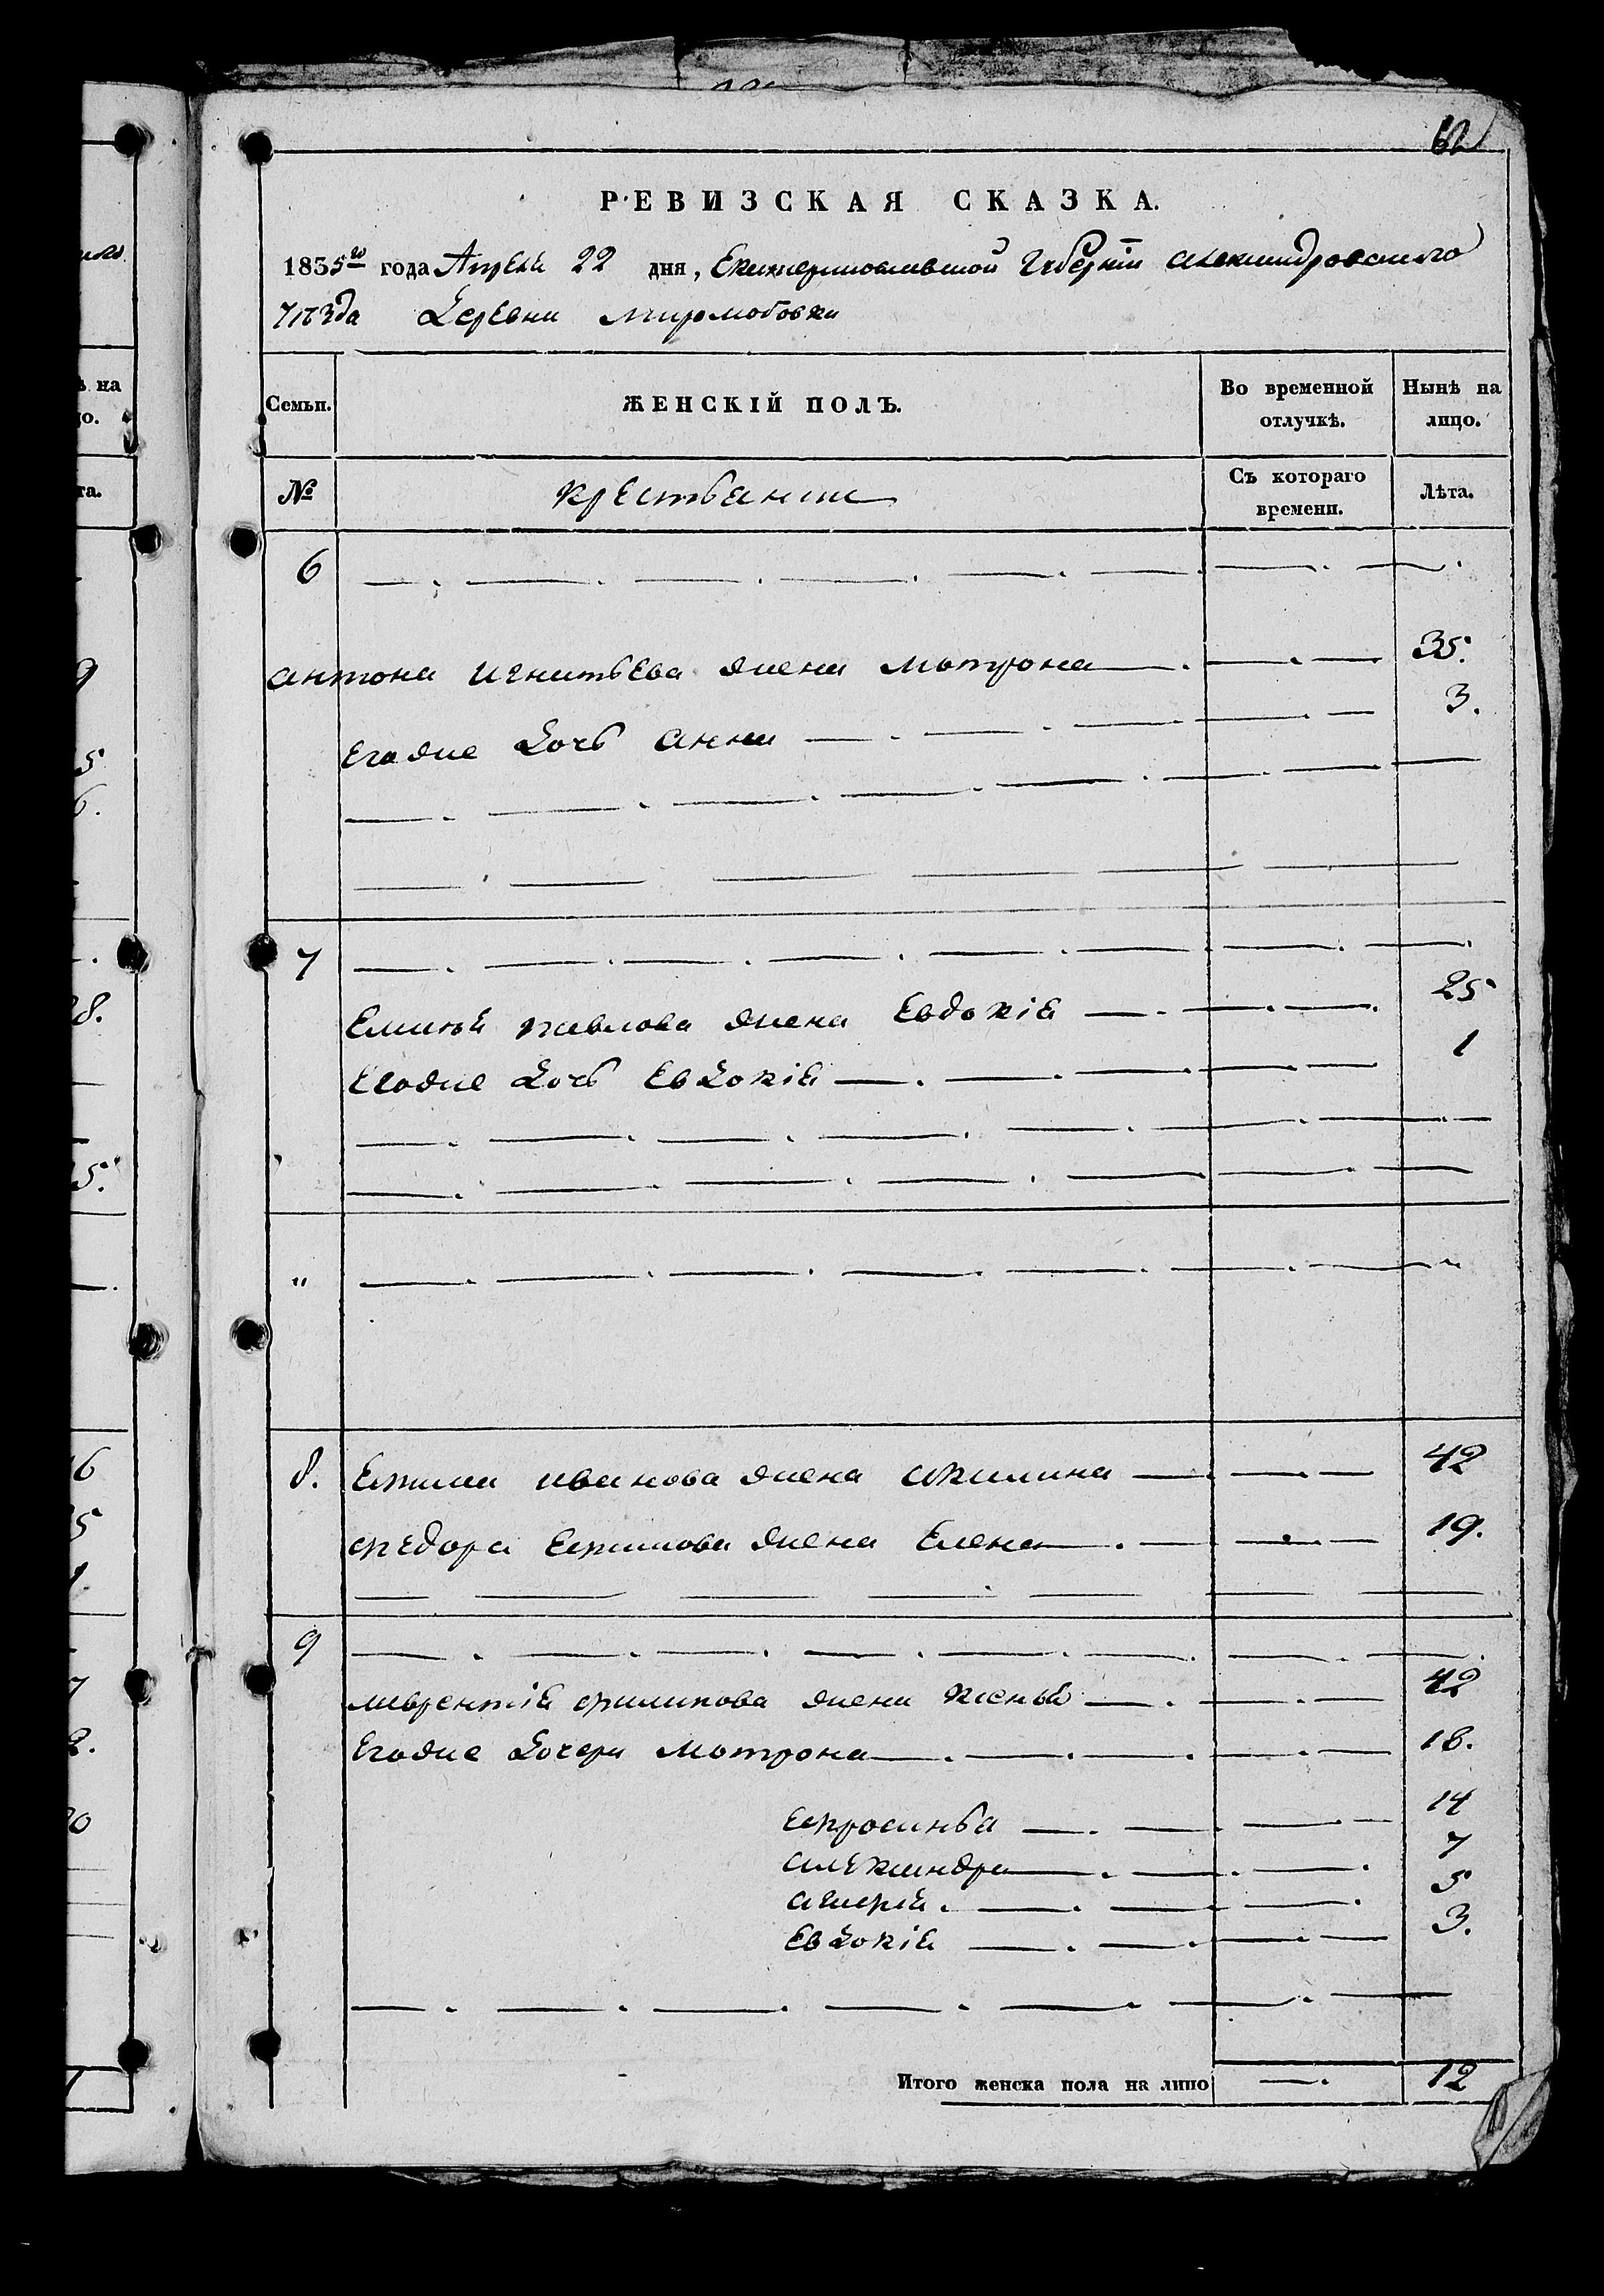 62
РЕВИЗСКАЯ СКАЗКА.
1835го года Апреля 22 дня, Екатеринославской Губернiи Александровского
уѣзда Деревни Миролюбовки
Семьи. ЖЕНСКІЙ ПОЛЪ. Во временной отлучкѣ. Нынѣ на лицо.
№ крестьяни Съ котораго времени. Лѣта.
6
Антона Игнатьева жена Мотрона 35.
Егожие дочь Анна 3.
7
Емилiя Павлова жена Евдокiя 25
Егожие дочь Евдокiя 1
"
8. Ефима Иванова жена Акилина 42
Федора Ефимова жена Елена 19.
9
Лаврентiя Филипова жена Ксенья 42
Егожие дочери Мотрона 18.
Ефросинья 14
Александра 7
5
Евдокiя 3.
Итого женска пола на лицо 12